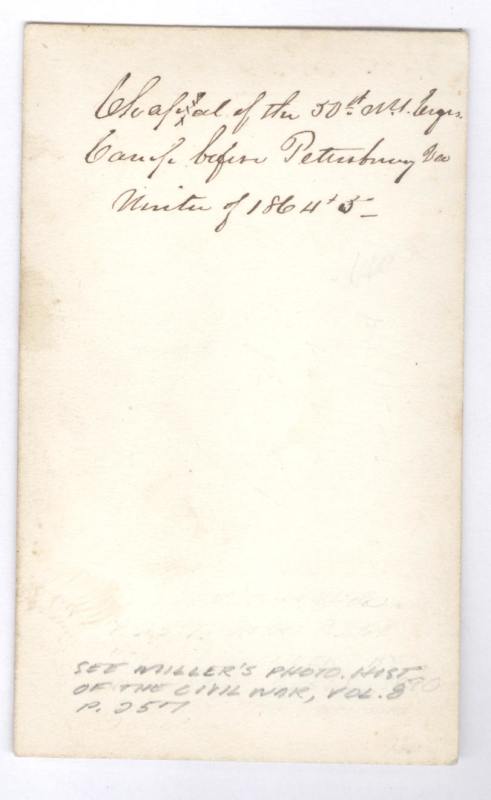 Chappal of the 50th N.Y. Engrs.
Camp before Petersburg Va
Winter of 1864 & 5 –
SEE MILLER'S PHOTO. HIST
OF THE CIVIL WAR, VOL. 8
P. 257